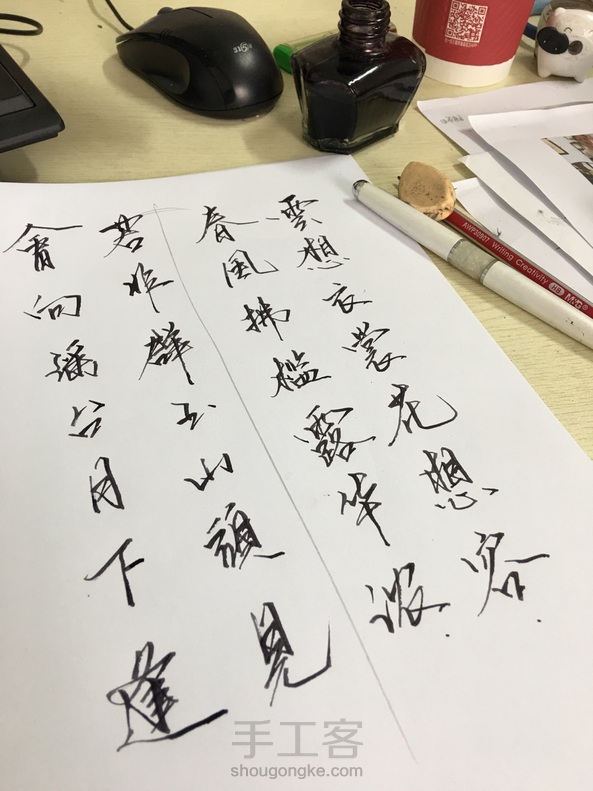 雲想衣裳花想容
春風拂檻露华浓
若非群玉山頭見
會向瑶台月下逢
AWP30907 Writing Creativity M&G
手工客
shougongke.com